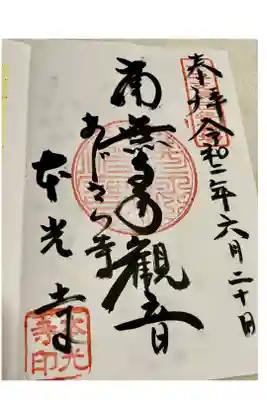 奉拝 令和二年六月二十日
南無の観音
あじさゐ寺
本光寺
本光
寺印